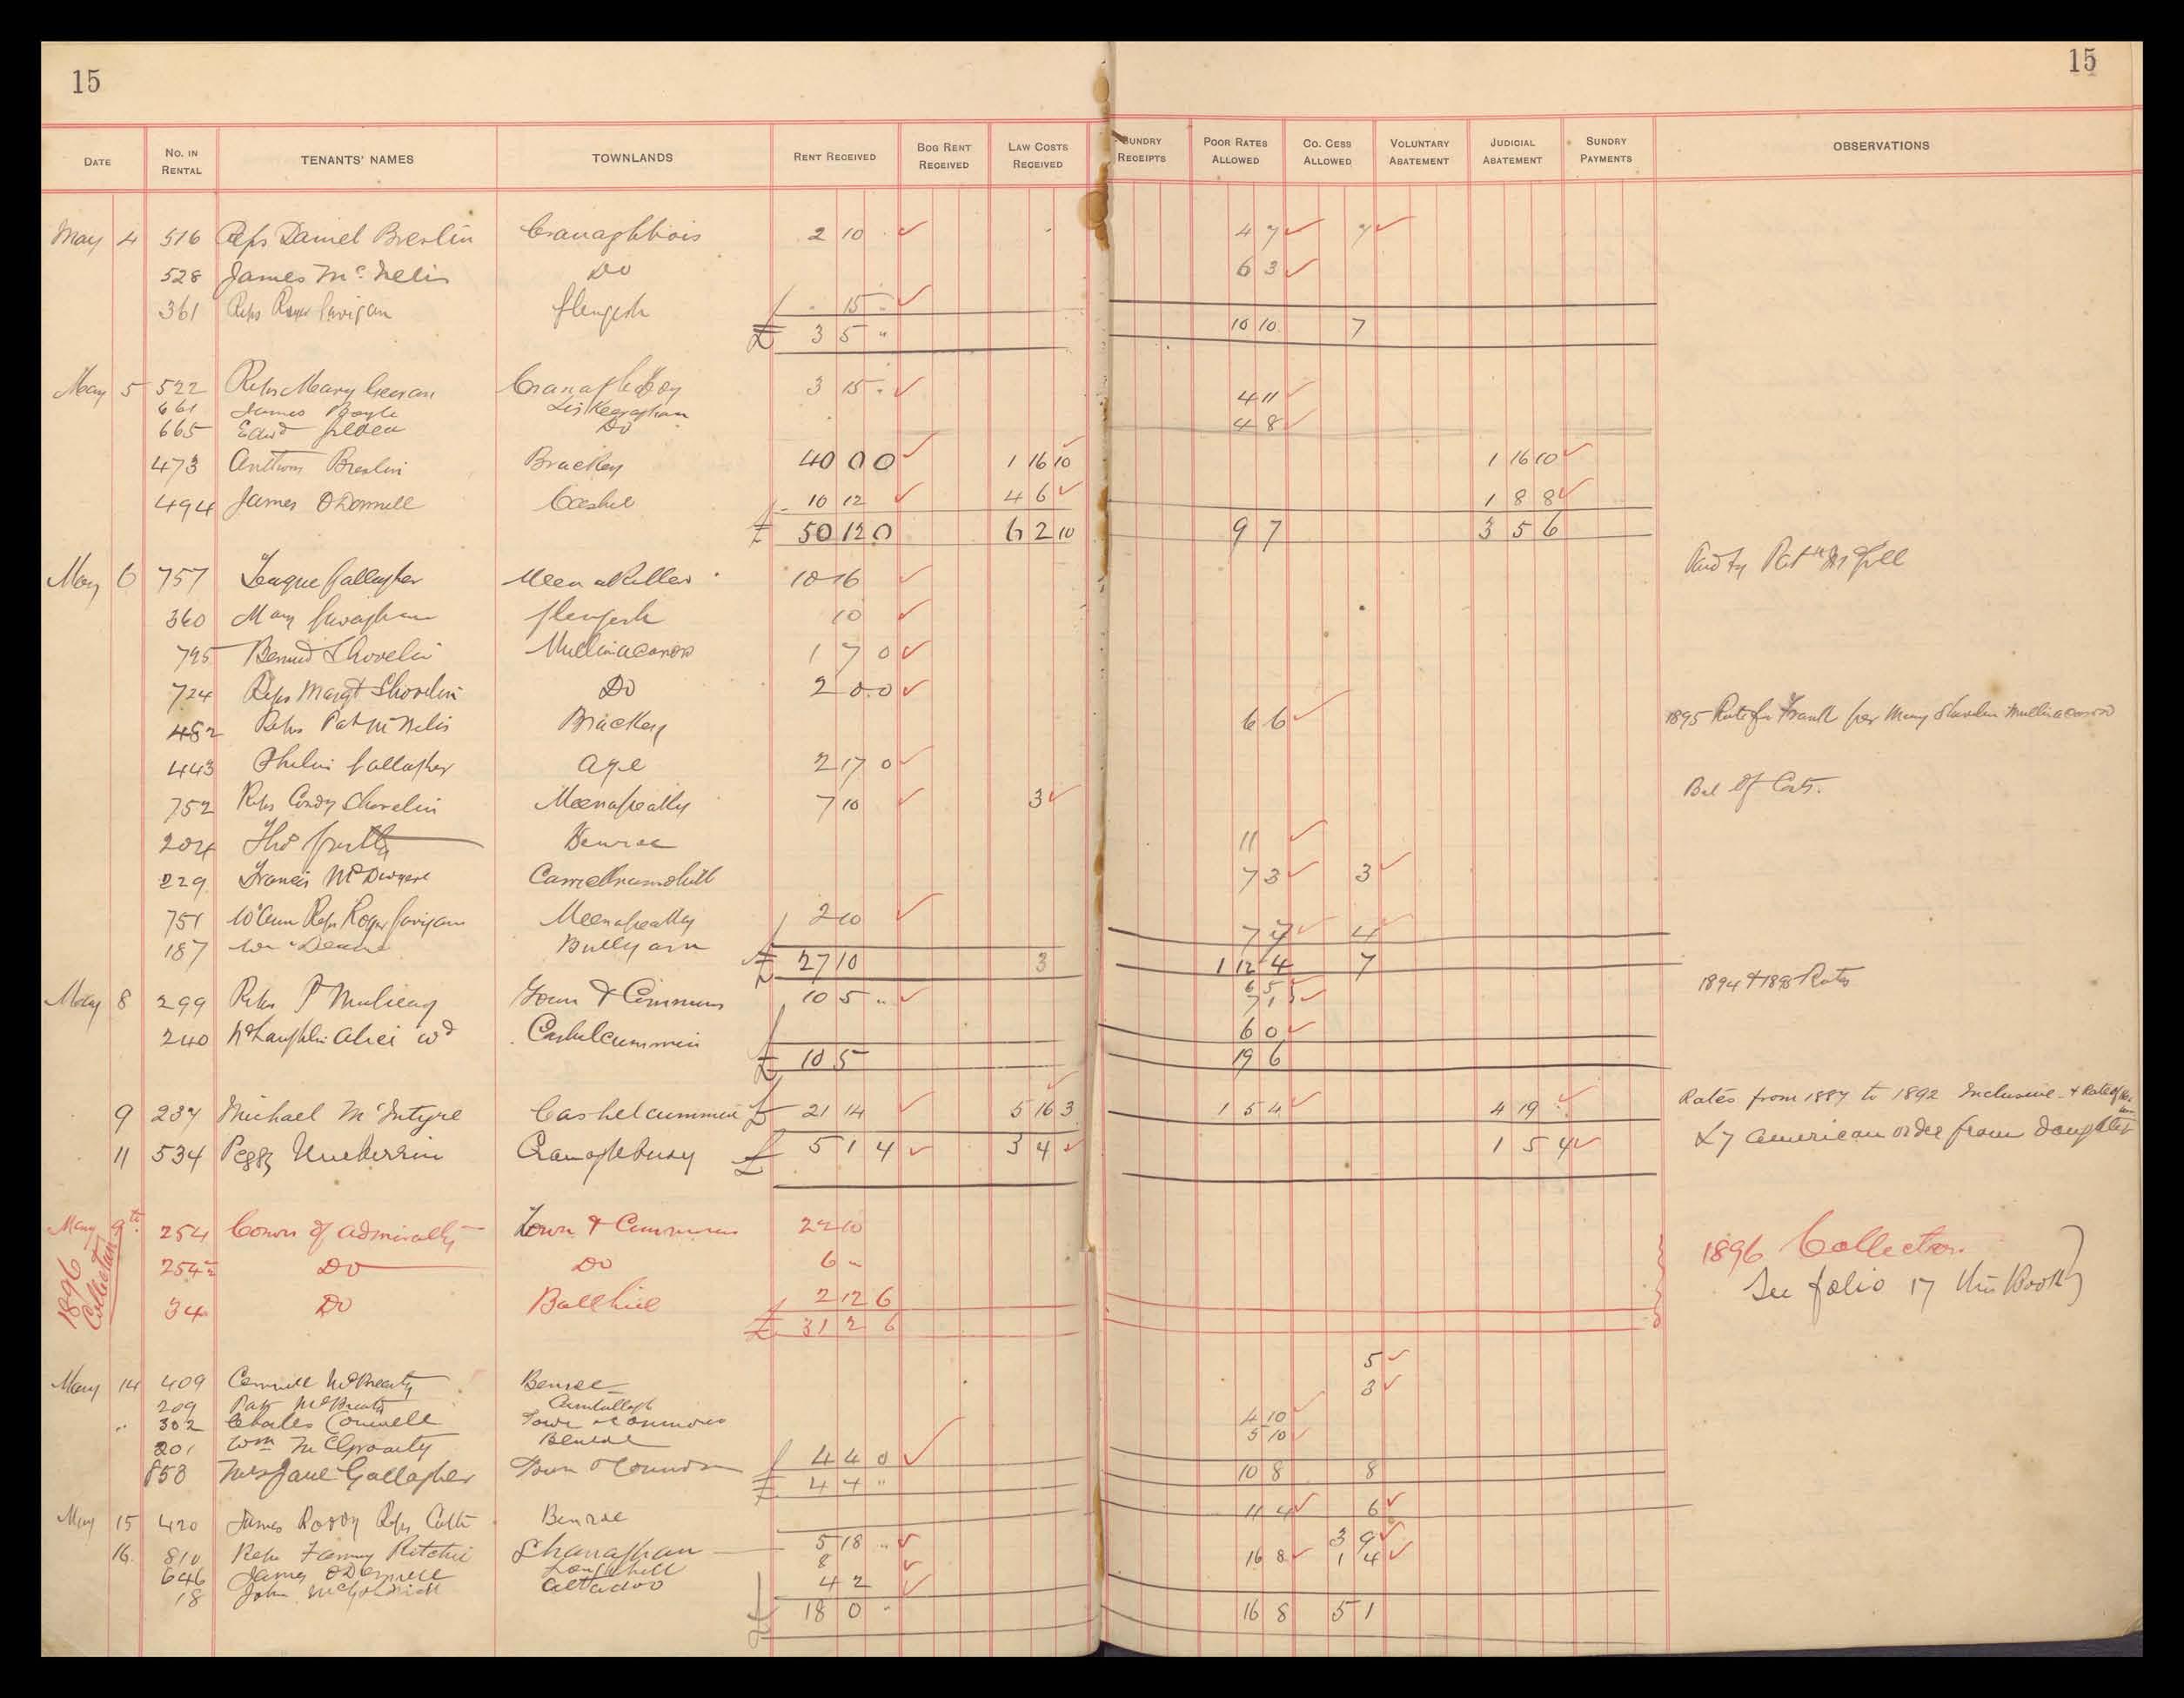 15
15
DATE No. IN RENTAL TENANTS' NAMES TOWNLANDS RENT RECEIVED BOG RENT RECEIVED LAW COSTS RECEIVED SUNDRY RECEIPTS POOR RATES ALLOWED CO. CESS ALLOWED VOLUNTARY ABATEMENT JUDICIAL ABATEMENT SUNDRY PAYMENTS OBSERVATIONS
May 4 516 Reps Daniel Breslin 2 10 4 7 7
528 James McNelis Do 6 3
361 Reps Roger Gavigan Glengesh 15 "
£ 3 5 " 10 10 7
May 5 522 Reps Mary 3 15 4 11
661 James Boyle 4 8
665 Edwd Do
473 Anthony Breslin Brackey 40 0 0 1 16 10 1 16 10
494 James O'Donnell Cashel 10 12 4 6 1 8 8
£ 50 12 0 6 2 10 9 7 3 5 6
May 6 757 Teague Gallagher 10 16 Paid by Patk McGill
360 Mary Glengesh 10
795 Bernard Shovelin Mullinacarrow 1 7 0
724 Reps Margt Shovelin Do 2 0 0
482 Reps Pat McNelis Brackey 6 6 1895 Rate for Frank per Mary Shovelin Mullinacarrow
443 Phelim Gallagher Agil 2 17 0
752 Reps Condy Shovelin Meenapeatty 7 10 3 Bal of Costs.
204 Thos Benroe 11
229 Francis McDwyer 7 3 3
751 Reps Roger Gavigan Meenapeatty 2 10
187 Wm Deane Bullyarn 7 4
£ 27 10 3 1 12 4 7
May 8 299 Reps P Town & Commons 10 5 " 1894 & 1895 Rates
240 McLaughlin Alice wd Cashelcummin 6 0
£ 10 5 19 6
9 237 Michael McIntyre Cashelcummin £ 21 14 5 16 3 1 5 4 4 19 Rates from 1887 to 1892 Inclusive
11 534 Peggy £ 5 1 4 3 4 1 5 4 £7 American order from daughter
May 9th 254 Comrs of Admiralty Town & Commons 22 10
1896 Collection
254½ Do Do 6 "
34 Do Ballhill 2 12 6
£ 31 2 6
1896 Collection
See folio 17 this Book
May 14 409 McBrearty Benroe 5
209 Patk McBrearty 3
" 302 Charles Connell Town & Commons 4 10
201 Wm McGroarty Benroe 5 10
853 Mrs Jane Gallagher Town & Commons 4 4 0
£ 4 4 " 10 8 8
May 15 420 James Roddy Reps Benroe 11 4 6
16 810 Reps Fanny Ritchie Shanaghan 5 18 " 3 9
646 James O'Donnell Loughhill 8 16 8 1 4
18 John Altadoo 4 2
£ 18 0 " 16 8 5 1